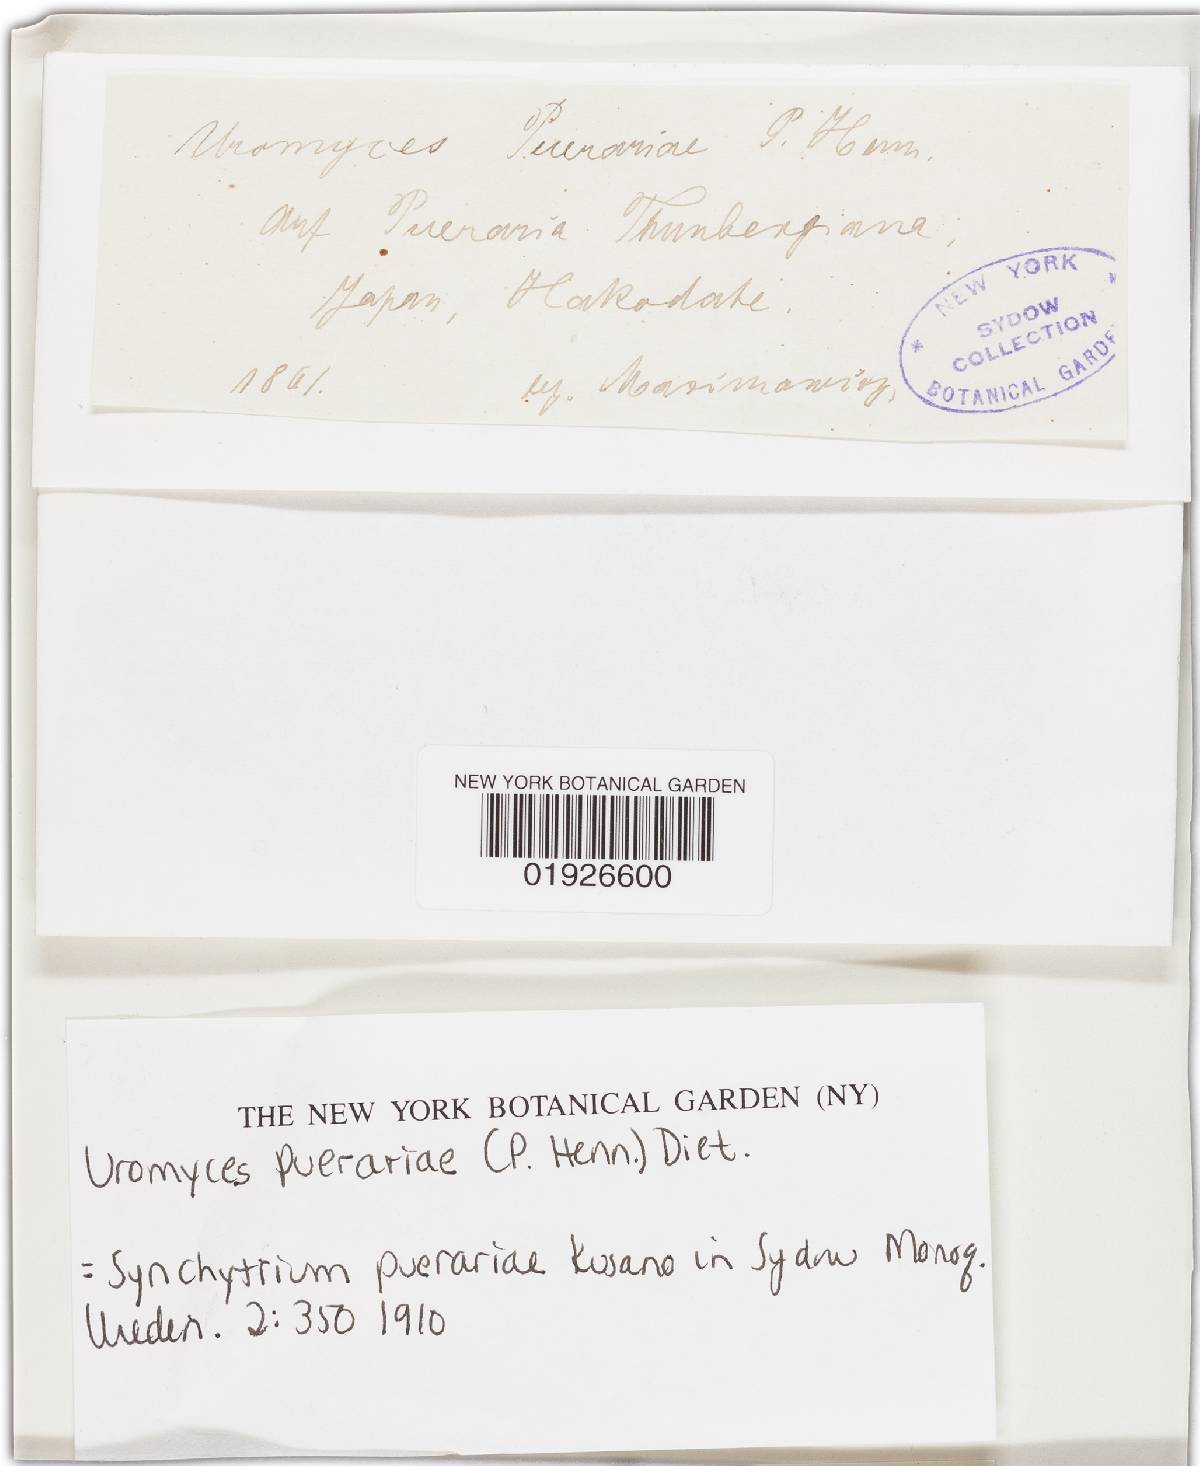 Uromyces Puerariae P. Henn.
auf Pueraria Thunbergiana,
Japan, Hakodate.
1861. leg. Maximowicz,
* NEW YORK *
SYDOW
COLLECTION
BOTANICAL GARDE
NEW YORK BOTANICAL GARDEN
01926600
THE NEW YORK BOTANICAL GARDEN (NY)
Uromyces puerariae (P. Henn.) Diet.
= Synchytrium puerariae Kusano in Sydow Monog.
Uredin. 2: 350 1910